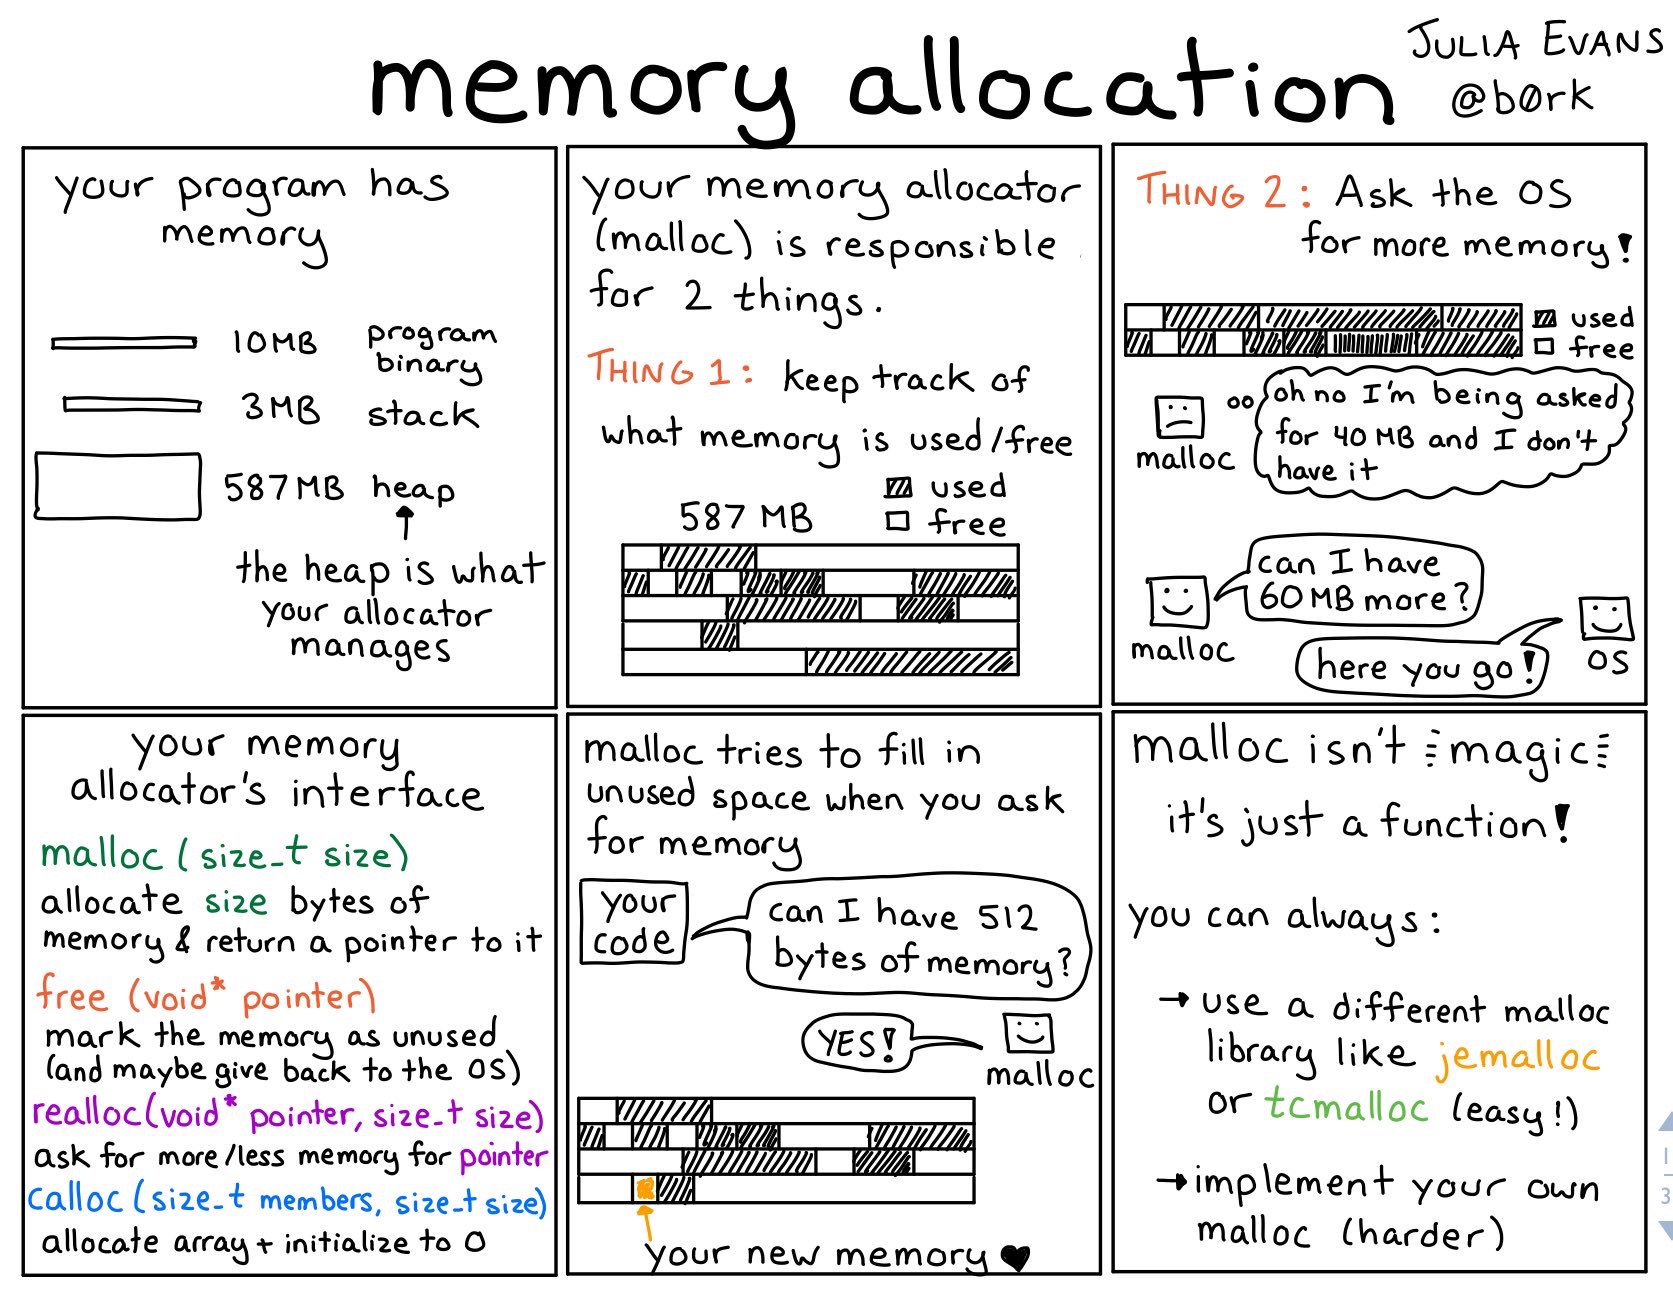 memory allocation
JULIA EVANS
@b0rk
your program has
memory
10MB program
binary
3MB stack
587MB heap
the heap is what
your allocator
manages
your memory allocator
(malloc) is responsible
for 2 things.
THING 1: keep track of
what memory is used/free
587 MB
used
free
THING 2: Ask the OS
for more memory!
used
free
malloc
oh no I'm being asked
for 40 MB and I don't
have it
can I have
60MB more?
malloc
here you go!
OS
your memory
allocator's interface
malloc (size_t size)
allocate size bytes of
memory & return a pointer to it
free (void* pointer)
mark the memory as unused
(and maybe give back to the OS)
realloc(void* pointer, size_t size)
ask for more/less memory for pointer
calloc (size_t members, size_t size)
allocate array + initialize to 0
malloc tries to fill in
unused space when you ask
for memory
your
code
can I have 512
bytes of memory?
YES!
malloc
your new memory ♥
malloc isn't magic
it's just a function!
you can always:
→ use a different malloc
library like jemalloc
or tcmalloc (easy!)
→ implement your own
malloc (harder)
1
3